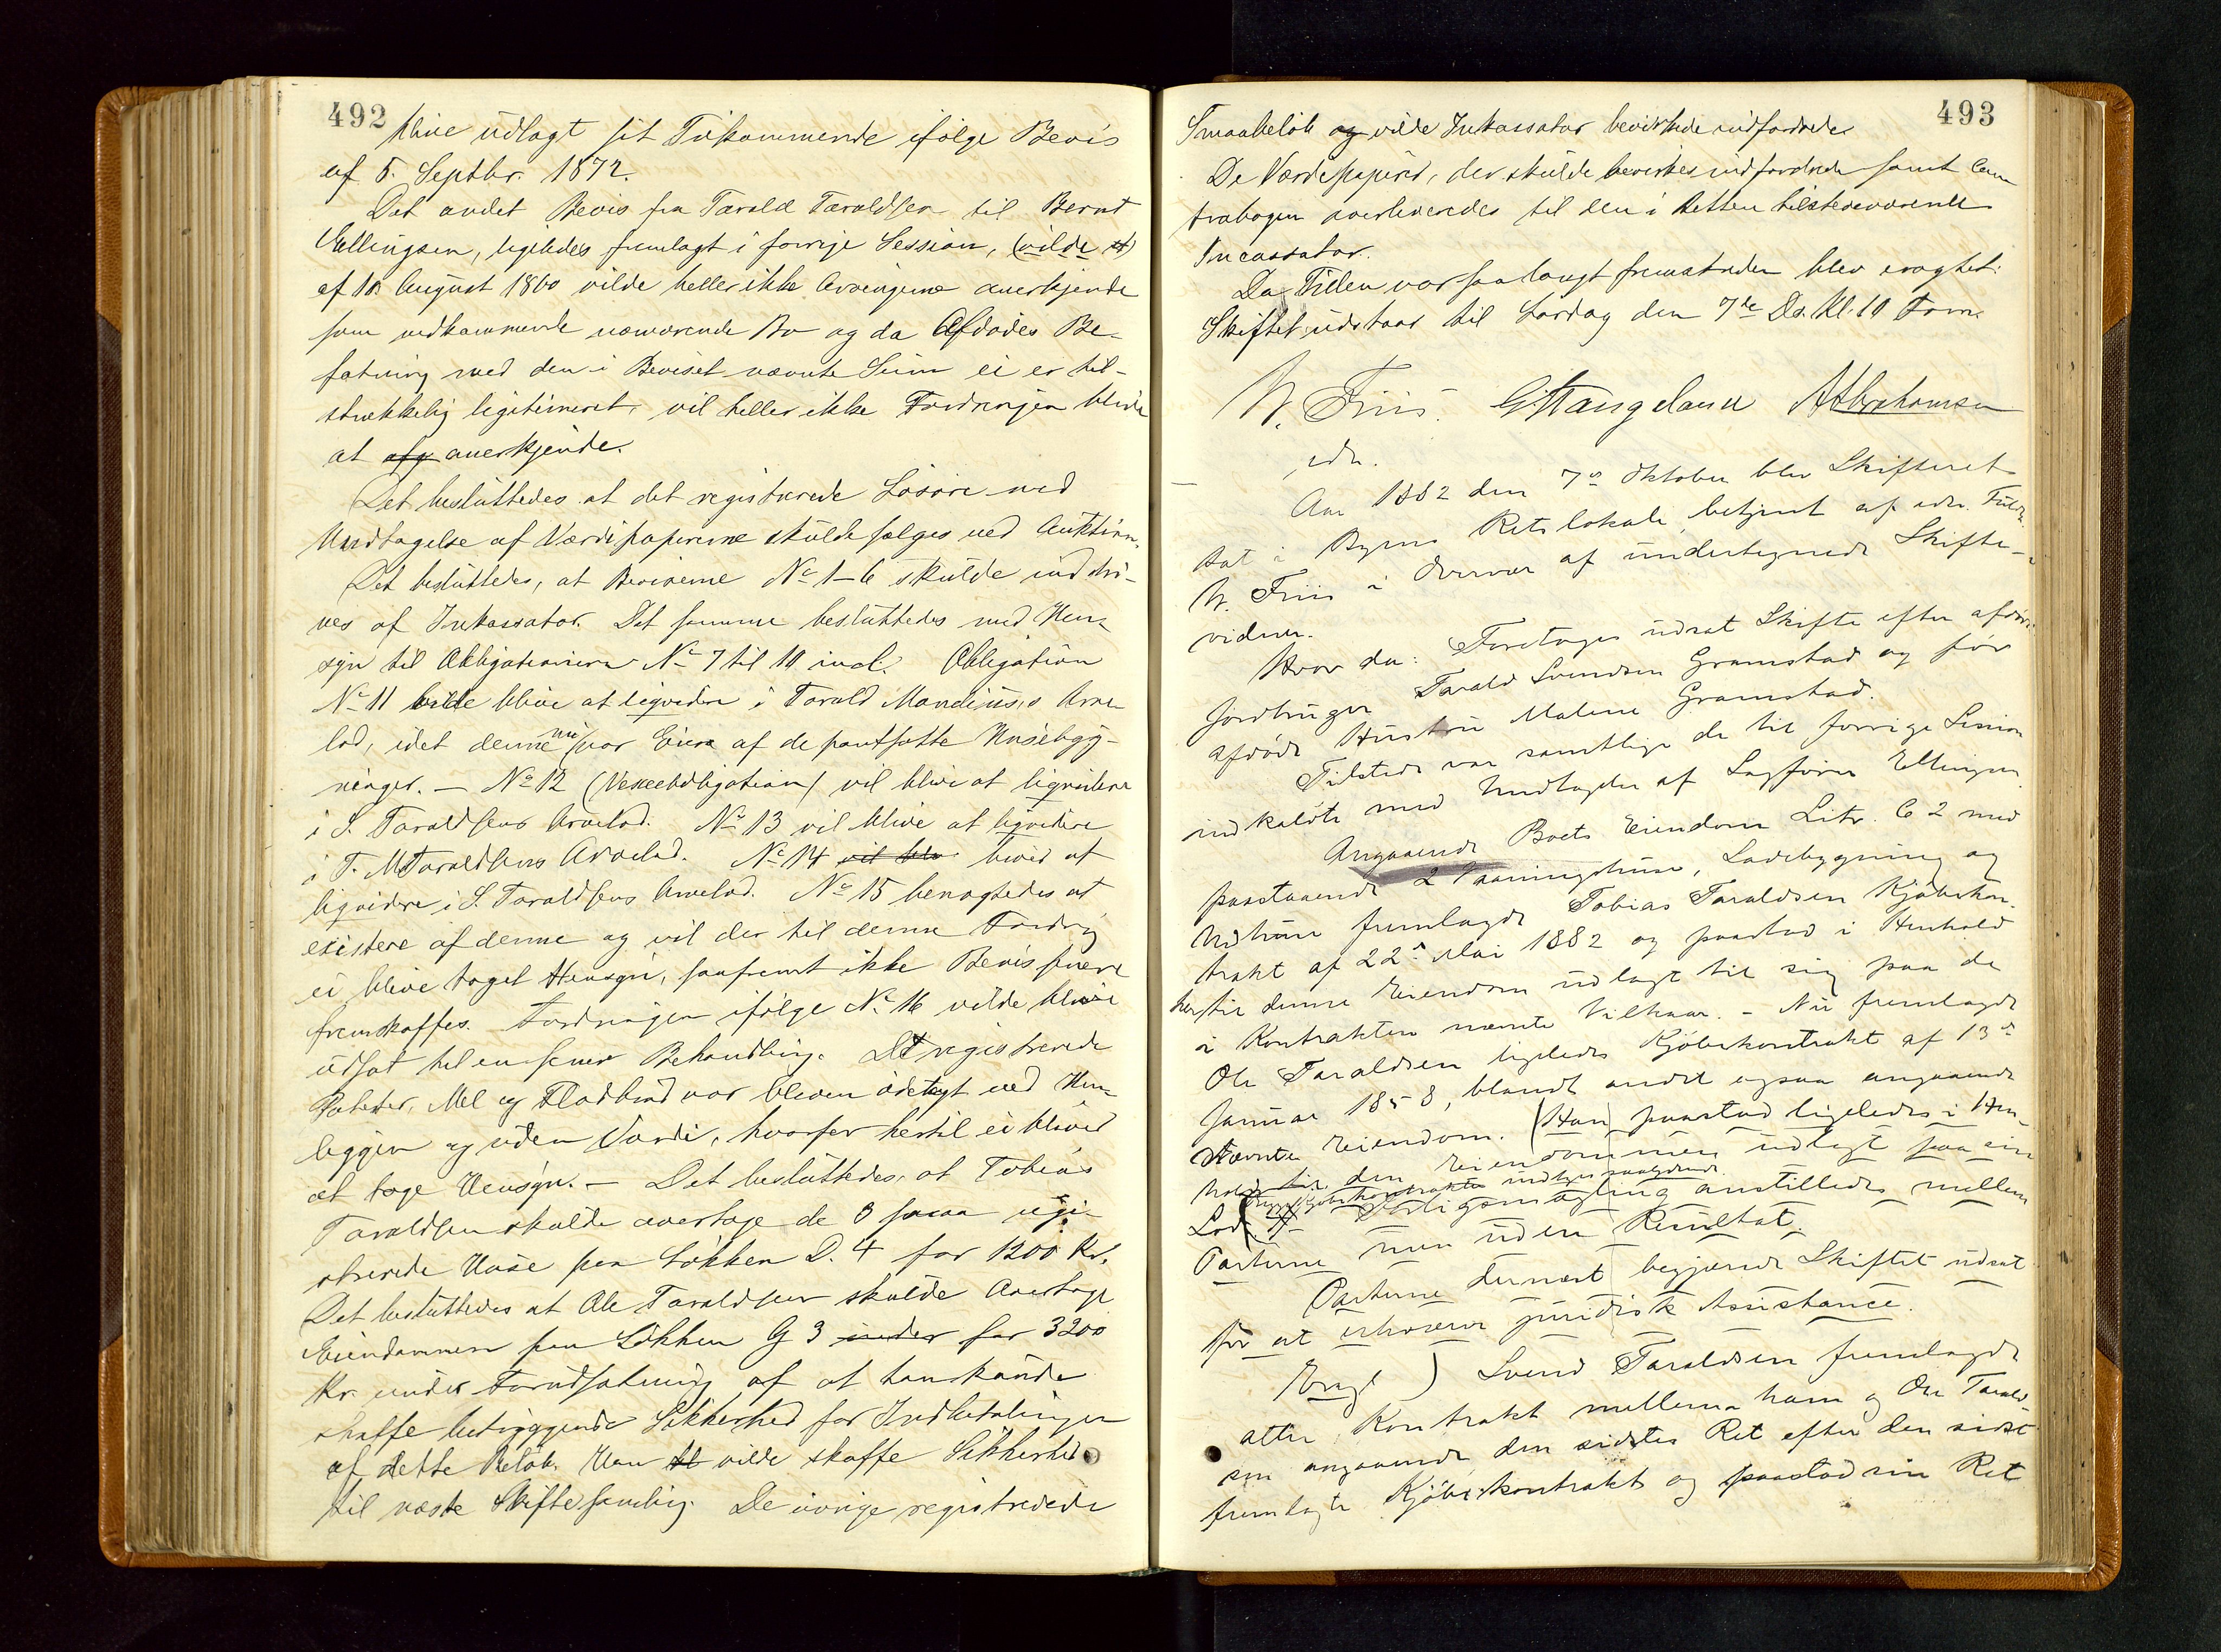 492
blive udlagt sit Tilkommende ifølge Bevis
af 5. Septbr. 1872.
Det andet Bevis fra Tarald Taraldsen til Bernt
Ellingsen, ligeledes fremlagt i forrige Session, (vilde
af 18 August 1860 vilde heller ikke Arvingerne anerkjende
som vedkommende nærværende Bo og da Afdødes Be-
fatning med den i Beviset nævnte Sum ei er til-
strækkelig legitimeret, vil heller ikke Fordringen blive
at afg anerkjende.
Det besluttedes at det registrerede Løsøre med
Undtagelse af Værdipapirerne skulde sælges ved Auktion.
Det besluttedes, at Beviserne No 1-6 skulde inddri-
ves af Inkassator. Det samme besluttedes med Hen-
syn til Obligationerne No 7 til 10 incl. Obligation
No 11 vilde blive at liqvidere i Tarald Mandius's Arve
lod, idet denne nu var Eier af de pantsatte Husebyg-
ninger. - No 12 (Vexelobligation) vil blive at liqvidere
i S. Taraldsens Arvelod. No 13 vil blive at liqvidere
i T. M Taraldsens Arvelod. No 14 vil blv bliver at
liqvidere i S. Taraldsens Arvelod. No 15 benægtedes at
existere af denne og vil der til denne Fordring
ei blive taget Hensyn, saafremt ikke Bevis herfor
fremskaffes. Fordringen ifølge No 16 vilde blive
udsat til en senere Behandling. Det registrerede
Poteter, Mel og Fladbrød var bleven ødelagt ved Hen-
liggen og uden Værdi, hvorfor hertil ei bliver
at tage Hensyn. - Det besluttedes, at Tobias
Taraldsen skulde overtage de 3 smaa regi-
strerede Huse paa Løkken D. 4 for 1200 Kr.
Det besluttedes at Ole Taraldsen skulde overtage
Eiendommen paa Løkken G 3 under for 3200
Kr. under Forudsætning af at han kunde
skaffe betryggende Sikkerhed for Indbetalingen
af dette Beløb. Han vilde skaffe Sikkerhed
til næste Skiftesamling. De øvrige registrerede
493
Smaabeløb og vilde Inkassator bevirkede indfordrede
De Værdipapirer, der skulde bevirkes indfordrede samt Con
trabogen overleveredes til den i Retten tilstedeværende
Incassator.
Da Tiden var saa langt fremskreden blev eragtet:
Skiftet udstaar til Lørdag den 7de Ds. Kl. 10 Form.
W. Friis. G. Stangeland A Abrahamsen
edv.
Aar 1882 den 7de Oktober blev Skifteret
sat i Byens Retslokale betjent af edv. Fuldm.
W. Friis i Overvær af undertegnede Skifte-
vidner.
Hvor da: Foretoges udsat Skifte efter afdøde
Jordbruger Tarald Svendsen Gramstad og før
afdøde Hustru Malene Gramstad.
Tilstede var samtlige de til forrige Session
indkaldte med Undtagelse af Sagfører Ellingsen
Angaaende Boets Eiendom Litr. C 2 med
paastaaende 2 Vaaningshuse, Ladebygning og
Udhuse fremlagde Tobias Taraldsen Kjøbekon-
trakt af 22de Mai 1882 og paastod i Henhold
hertil denne Eiendom udlagt til sig paa de
i Kontrakten nævnte Vilkaar. - Nu fremlagde
Ole Taraldsen ligeledes Kjøbekontrakt af 13de
Januar 1858, blandt andet ogsaa angaaende
nævnte Eiendom. (Han) paastod ligeledes i Hen-
hold til den Eiendommen udlagt paa sin
Lod. Forligsmægling anstilledes mellem
Parterne men uden Resultat.
Parterne dernæst begjærede Skiftet udsat
for at erhverve juridisk Assistance.
Eragt ) Svend Taraldsen fremlagde
atter Kontrakt mellem ham og Ole Tarald
sen angaaende den sidstes Ret efter den sidst
fremlagte Kjøbekontrakt og paastod sin Ret